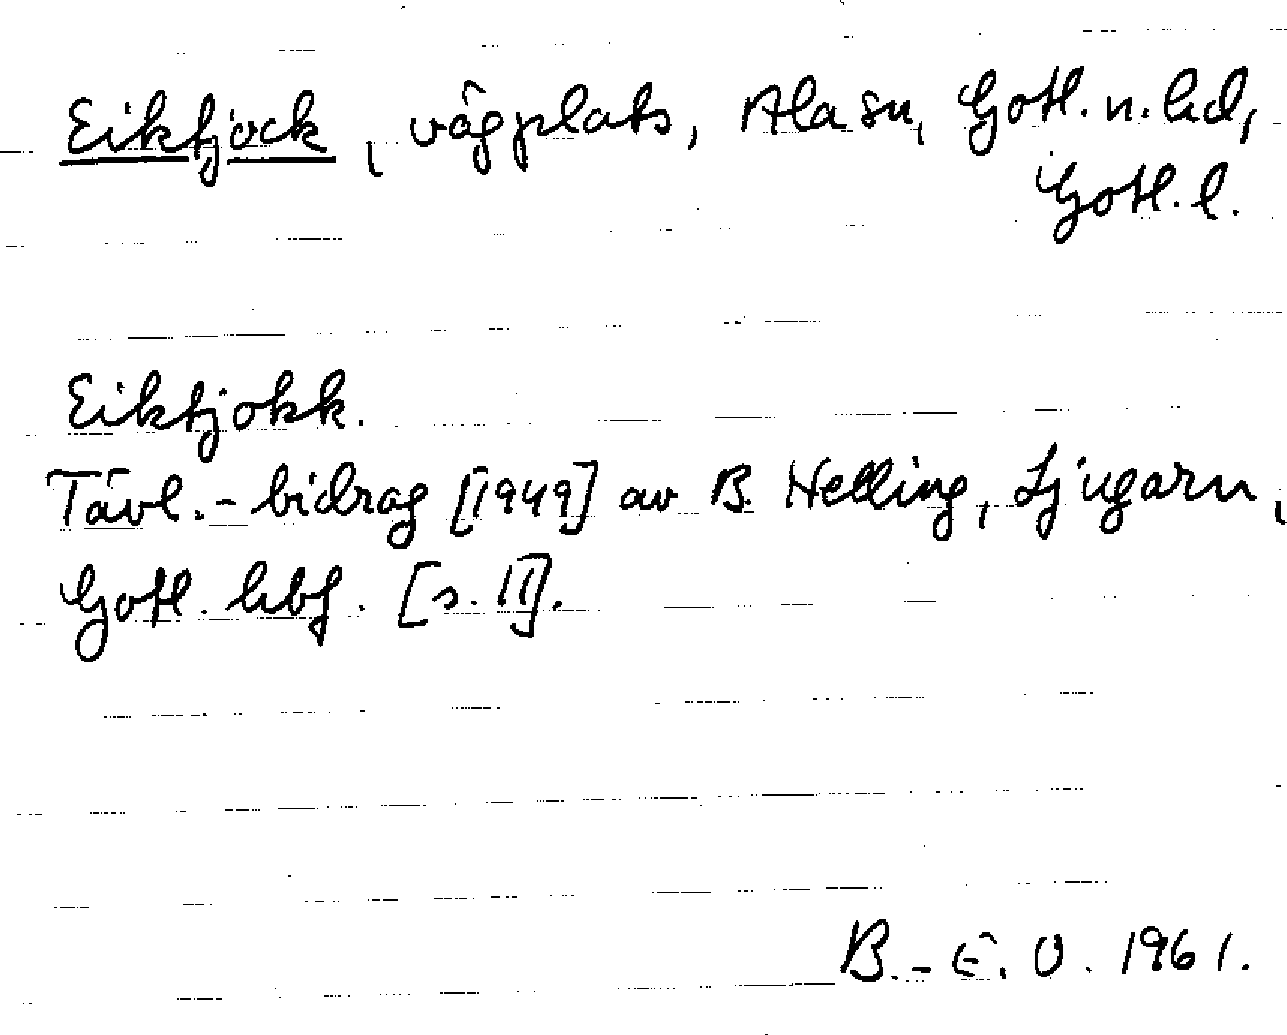 Eiktjock, vägplats, Ala sn, Gotl. n. hd,
Gotl. l.
Eiktjokk.
Tävl.-bidrag [1949] av B. Helling, Ljugarn,
Gotl. hbf. [s. 11].
B.-E. O. 1961.